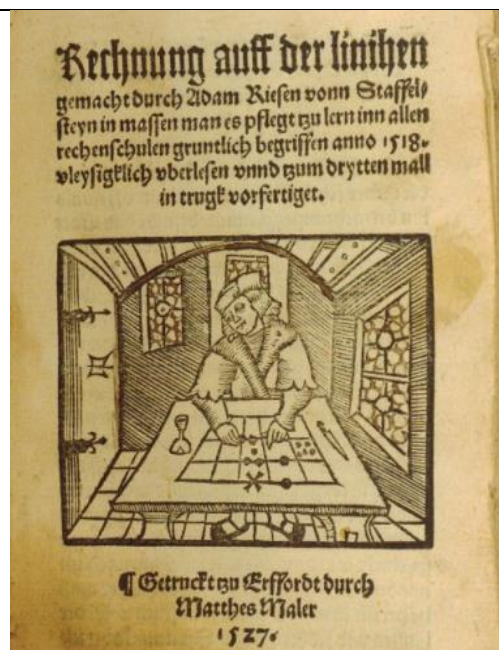 Rechnung auff der linihen
gemacht durch Adam Riesen vonn Staffel⸗
steyn in massen man es pflegt tzu lern inn allen
rechenschulen gruntlich begriffen anno 1518.
vleysigklich vberlesen vnnd tzum drytten mall
in trugk vorfertiget.
¶ Getruckt tzu Erffordt durch
Matthes Maler
1527.